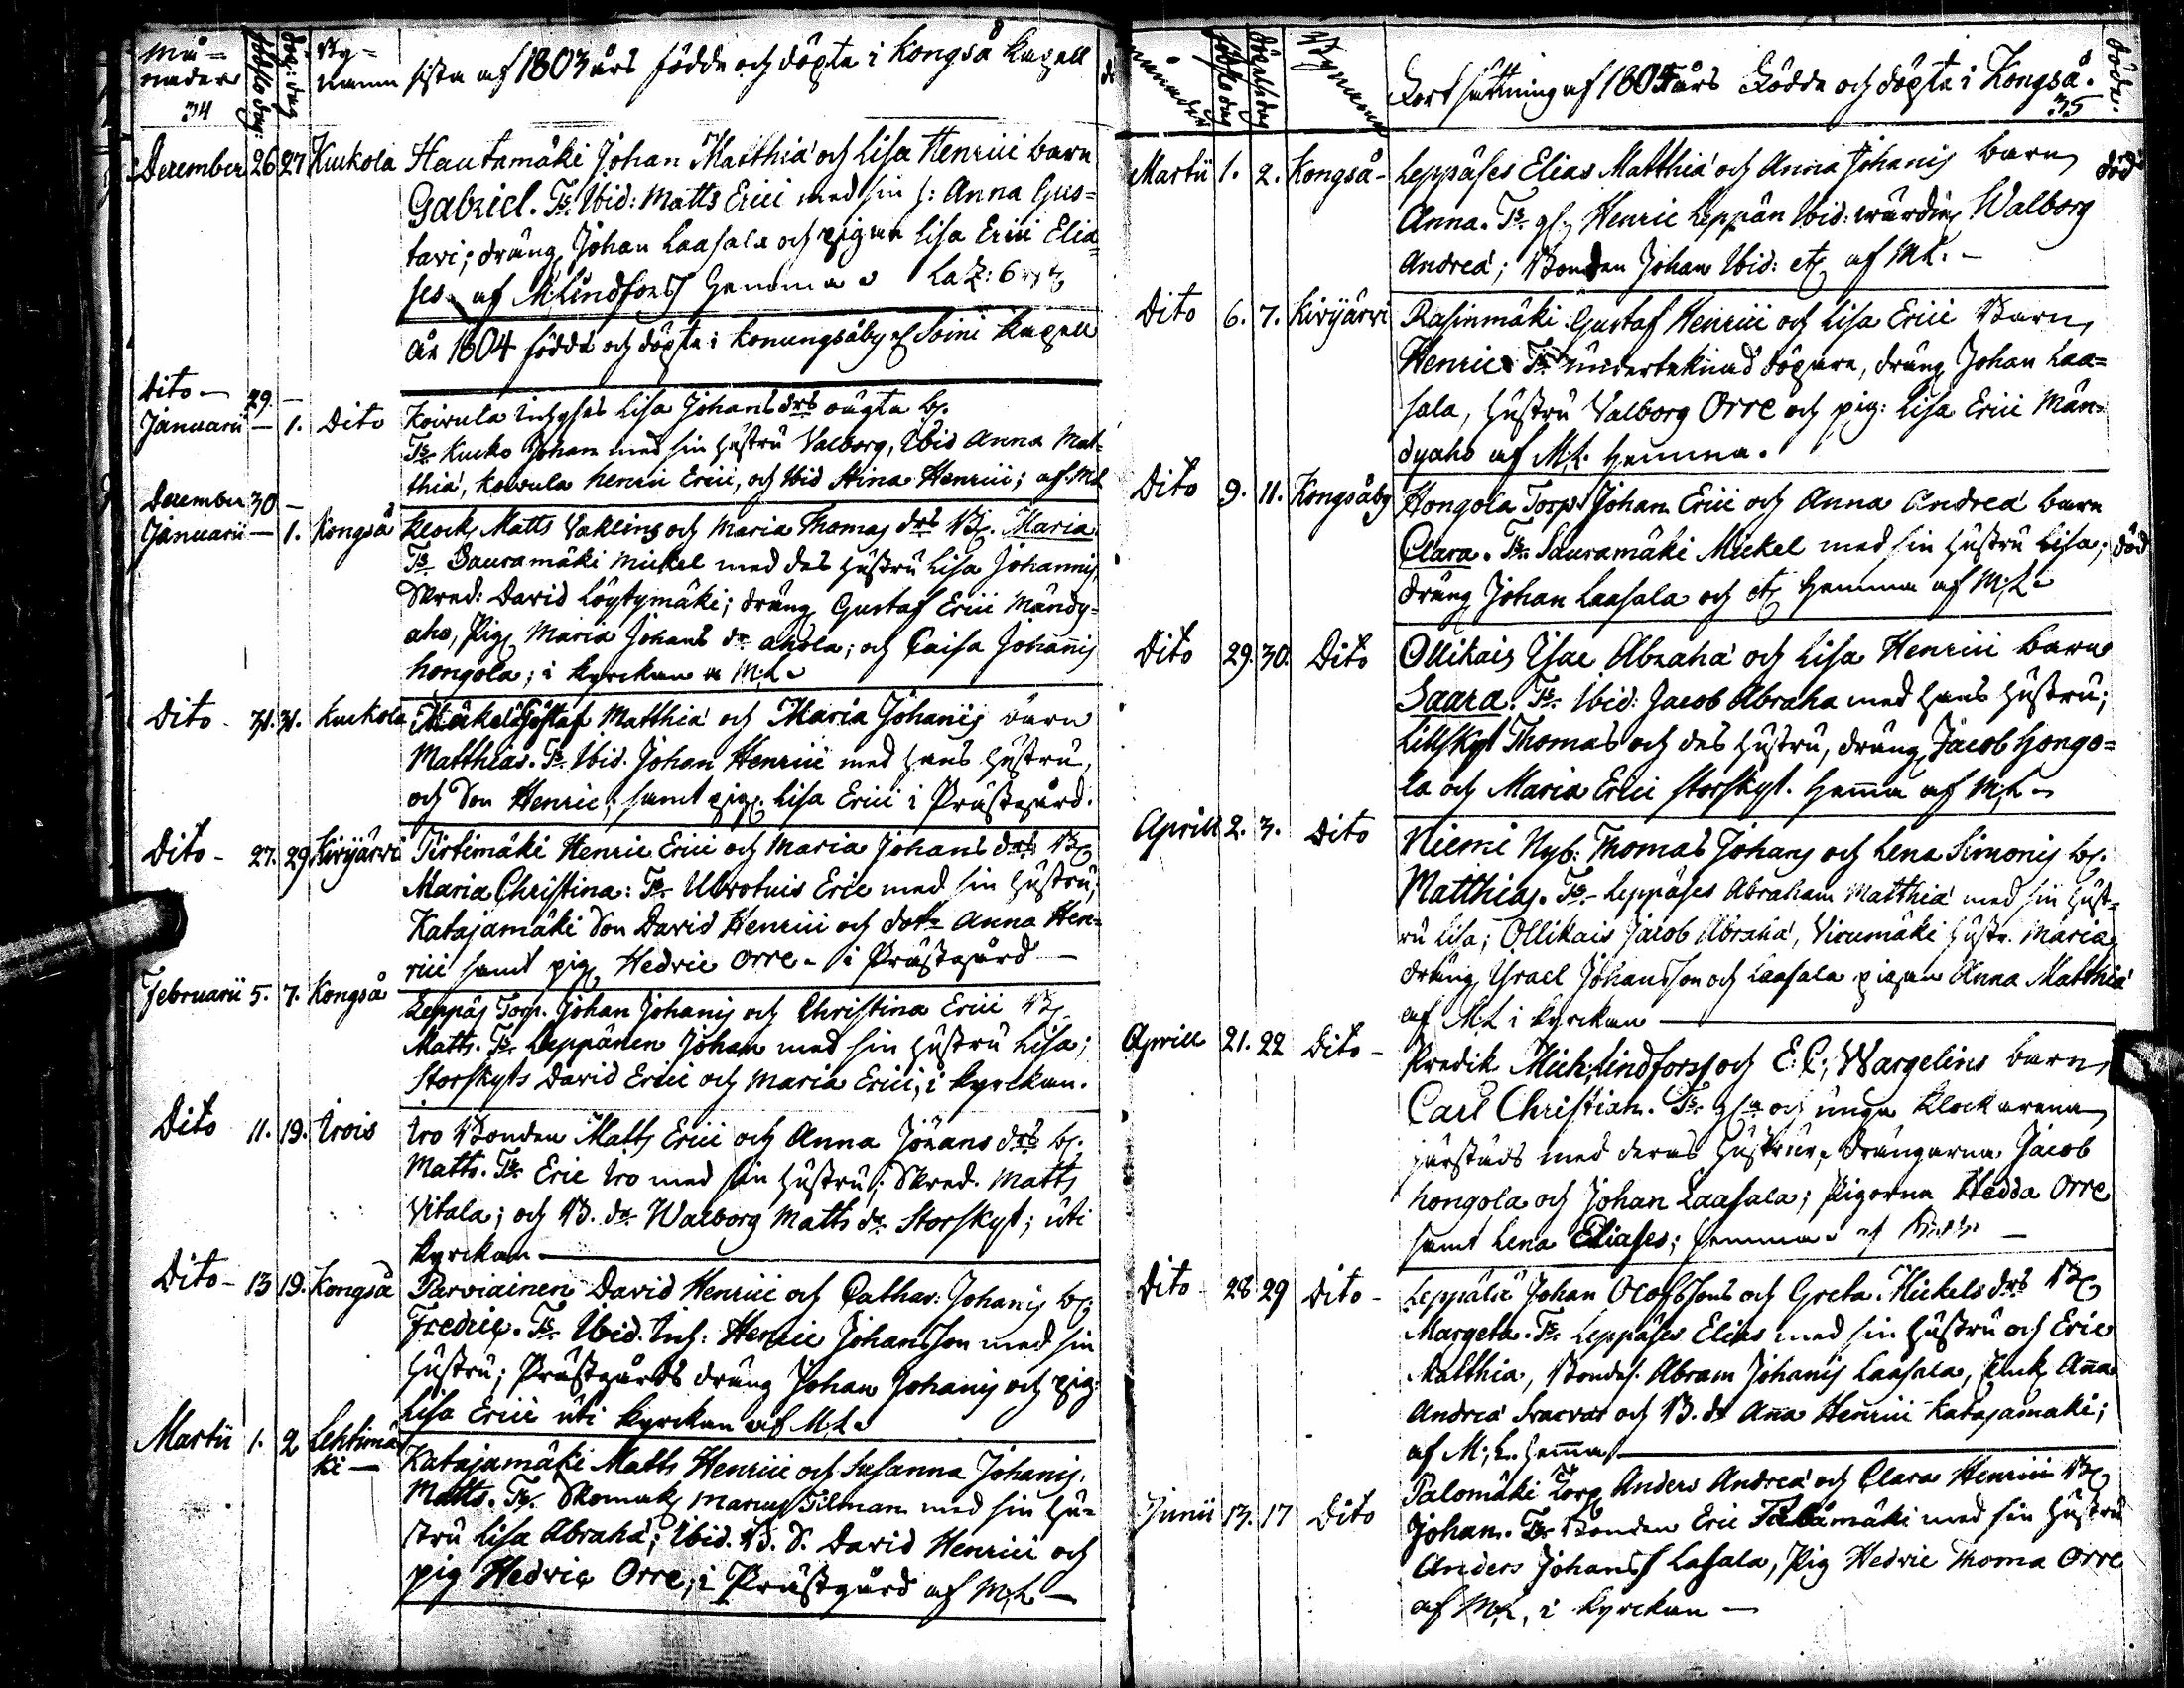 Må=
nader
34
födslo dag:
döp: dag
By=
namn
sista af 1803 års födde och döpte i Kongså Kapell
December 26 27 Kuckola Hautamäki Johan Matthiä och Lisa Henrici barn
Gabriel. Ts. Ibid: Matts Erici med sin h: Anna Gus=
tavi; dräng Johan Laasala och pigan Lisa Erici Elia
ses af M. Lindforss hemma
År 1804 födde och döpte i Konungsåby Soini Kapell
Dito 29 —
Januarii — 1. Dito Koivula Inhyses Lisa Johans drs oägta b.
Ts. Kucko Johan med sin hustru Valborg, Ibid Anna Mat=
thiä, Koivula Henric Erici, och Ibid Stina Henrici; af ML
December 30 —
Januarii — 1. Kongså Klock. Matts Vaklins och Maria Thomas drs B. Maria
Ts. Sauramäki Mickel med des hustru Lisa Johannis,
Skred: David Löytymäki; dräng Gustaf Erici Mändy=
aho, Pig. Maria Johans dr Ahola; och Caisa Johannis
Hongola; i Kyrckan M:L.
Dito 31. 31. Kuckola Mäkelä Gustaf Matthiä och Maria Johanis barn
Matthias. Ts. Ibid. Johan Henrici med hans hustru,
och Son Henric; samt pig. Lisa Erici i Prästegård.
Dito 27. 29. Kivijärvi Tirtimäki Henric Erici och Maria Johans drs B.
Maria Christina: Ts. Ulvotuis Eric med sin hustru;
Katajamäki Son David Henrici och dotr Anna Hen=
rici samt pig. Hedvic Orre i Prästegård —
Februarii 5. 7. Kongså Leppäs Torp. Johan Johanis och Christina Erici B.
Matts. Ts. Leppänen Johan med sin hustru Lisa;
Storskyts David Erici och Maria Erici, i Kyrckan.
Dito 11. 19. Irois Iro Bonden Matts Erici och Anna Johans drs b.
Matts. Ts. Eric Iro med sin hustru; Skred. Matts
Vitala; och B. dr Walborg Matts dr Storskyt; uti
Kyrckan
Dito 13 19. Kongså Parviainen David Henrici och Cathar: Johanis b.
Fredric. Ts. Ibid. Inh: Henric Johansson med sin
hustru; Prästgårds dräng Johan Johanis och pig:
Lisa Erici uti Kyrckan af M:L.
Martii 1. 2 Lehtimä
ki — Katajamäki Matts Henrici och Susanna Johanis.
Matts. Ts. Skomak. Marcus Tilman med sin hu=
stru Lisa Abrahä; Ibid. B. S. David Henrici och
pig Hedvic Orre, i Prästgård af M:L —
månader
födslo dag
döpelse dag
Bynamn
Fortsättning af 1804 års Födde och döpte i Kongså.
35
döde
Martii 1. 2. Kongså Leppäses Elias Matthiä och Anna Johanis barn död
Anna. Ts. Henric Leppän Ibid: värdin Walborg
Andreä; Bonden Johan Ibid: etc af ML. —
Dito 6. 7. Kivijärvi Rasinmäki Gustaf Henrici och Lisa Erici Barn
Henric Ts. undertecknad döpare, dräng Johan Laa=
sala, hustru Valborg Orre och pig: Lisa Erici Män=
dyaho af M:L. hemma.
Dito 9. 11. Kongsåby Hongola Torp. Johan Erici och Anna Andreä barn
Clara. Ts. Sauramäki Mickel med sin hustru Lisa; död
dräng Johan Laasala och etc hemma af M:L
Dito 29. 30. Dito Ollikais Isac Abrahä och Lisa Henrici barn
Saara. Ts. Ibid: Jacob Abraha med hans hustru;
Lillskyt Thomas och des hustru, dräng Jacob Hongo=
la och Maria Erici Storskyt. hemma af M:L
Aprill 2. 3. Dito Niemi Nyb: Thomas Johans och Lena Simonis b.
Matthias. Ts. Leppäses Abraham Matthiä med sin hust=
ru Lisa; Ollikais Jacob Abrahä, Virumäki hustr. Maria,
dräng Israel Johansson och Laasala pigan Anna Matthiä
af M:L i Kyrckan
Aprill 21. 22 Dito Predik. Mich. Lindforss och E: C: Wargelins barn
Carl Christian. Ts. och unga Klockarena
härstäds med deras hustrur, drängarna Jacob
Hongola och Johan Laasala; Pigorna Hedda Orre
samt Lena Eliases; hemma af
Dito 28. 29 Dito Leppälä Johan Olofssons och Greta Mickels drs B.
Margeta. Ts. Leppäses Elias med sin hustru och Eric
Matthia, Bondes. Abram Johanis Laasala, Enk. Anna
Andreä och B. dr Anna Henrici Katajamäki;
af M:L. hemma
Junii 13. 17 Dito Palomäki Torp. Anders Andreä och Clara Henrici B.
Johan. Ts. Bonden Eric Palomäki med sin hustru
Anders Johanss Lasala, Pig Hedvic Thoma Orre
af M:L, i Kyrckan —